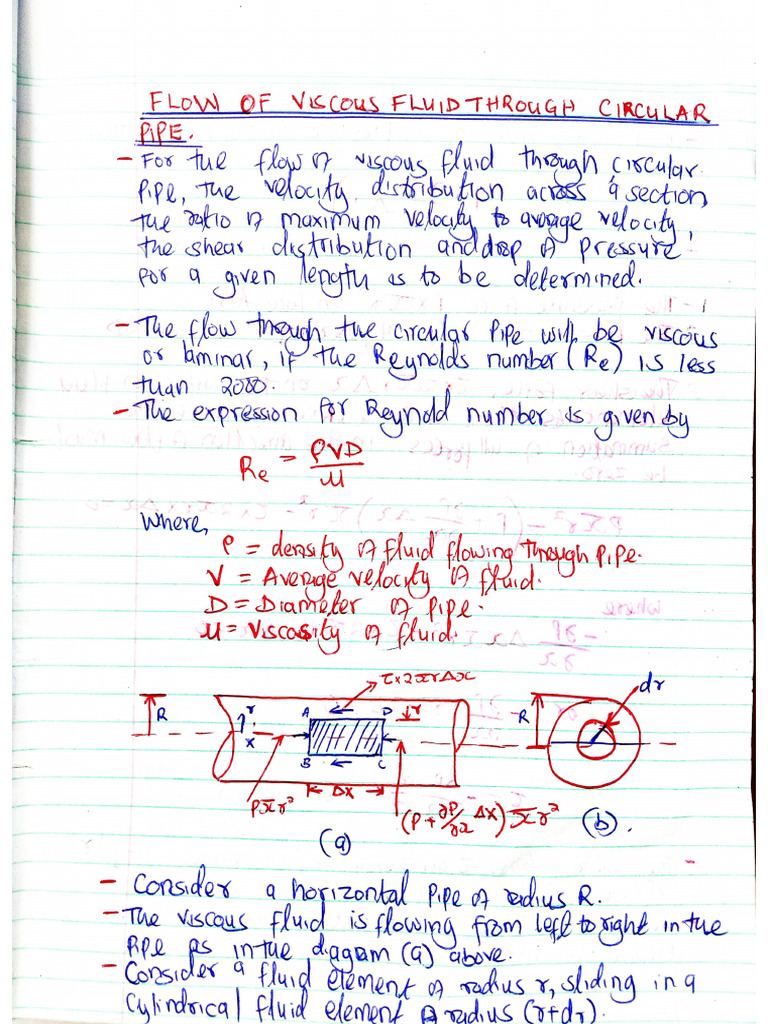 FLOW OF VISCOUS FLUID THROUGH CIRCULAR
PIPE.
- For the flow of viscous fluid through circular
pipe, the velocity distribution across a section,
the ratio of maximum velocity to average velocity,
the shear distribution and drop of pressure
for a given length is to be determined.
- The flow through the circular pipe will be viscous
or laminar, if the Reynolds number (Re) is less
than 2000.
- The expression for Reynold number is given by
Re = ρVD/μ
Where,
ρ = density of fluid flowing through pipe.
V = Average velocity of fluid.
D = Diameter of pipe.
μ = Viscosity of fluid.
τ×2πrΔx
dr
R
r
x
A
D
r
R
B
C
Δx
Pπr²
(P + ∂P/∂x Δx) πr²
(a)
(b).
- Consider a horizontal pipe of radius R.
- The viscous fluid is flowing from left to right in the
pipe as in the diagram (a) above.
- Consider a fluid element of radius r, sliding in a
cylindrical fluid element of radius (r+dr).